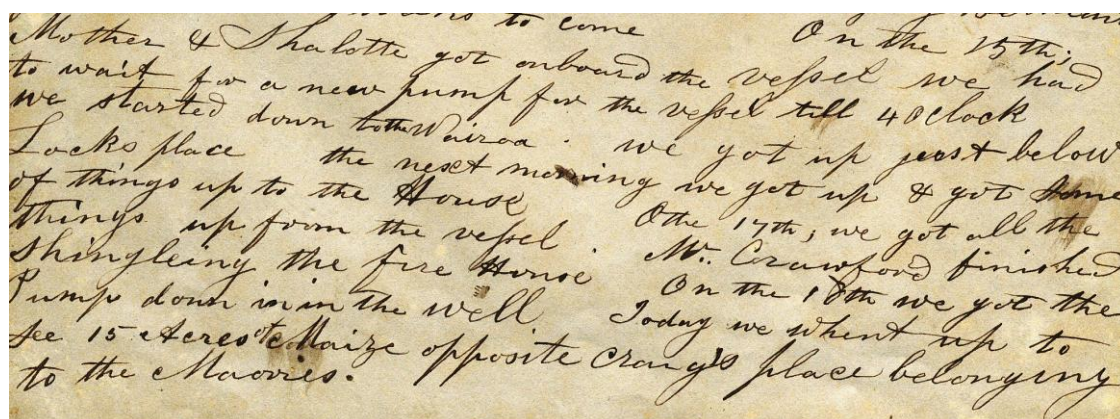 to come
Mother & Shalotte got onboard the vessel we had On the 15th;
to wait for a new pump for the vessel till 4 OClock
we started down to the Wairoa. we got up just below
Locks place the next morning we got up & got som
of things up to the House Othe 17th; we got all the
things up from the vessel. Mr. Crawford finished
shingleing the fire House On the 18th we got the
Pump down in in the well Today we whent up to
see 15 Acres of Maize opposite Craigs place belonging
to the Maories.